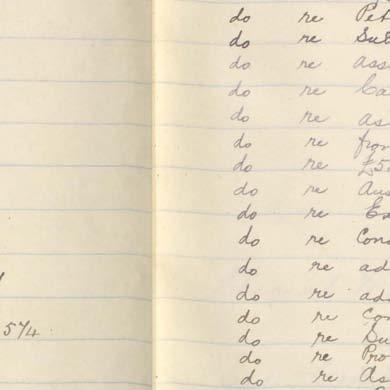 do re Pet
do re Sub
do re ass
do re Ca
do re as
do re from
do re £5
do re Aus
do re Ex
do re Cons
do re ad
do re ad
do re Con
574 do re Su
do re Pro
do re As